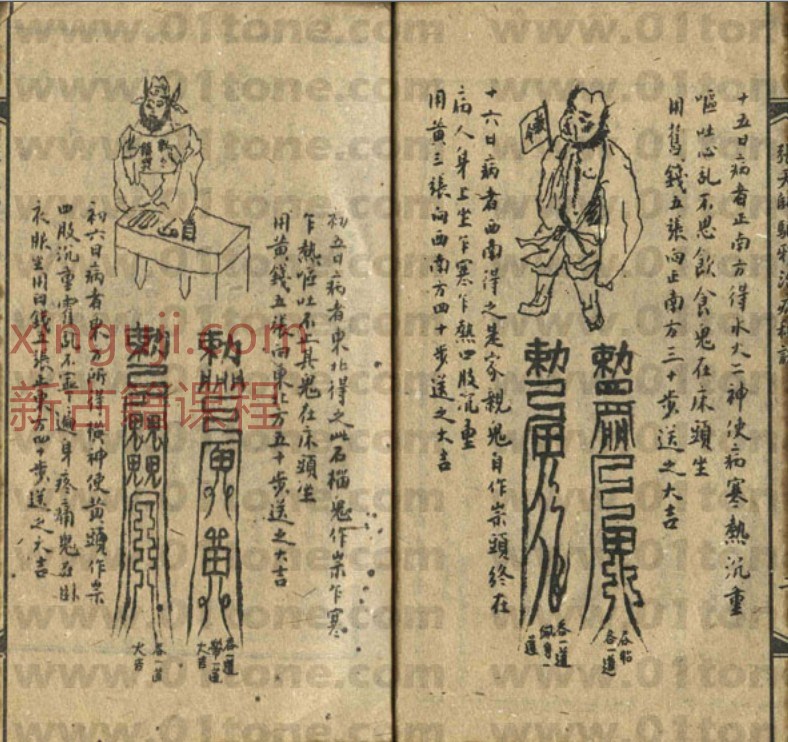 張天師驅邪治病
十五日病者正南方得水火二神使病寒熱沉重
嘔吐心乱不思飲食鬼在床頭坐
用舊錢五張向正南方三十步送之大吉
吞貼
各一道
十六日病者西南得之是家親鬼自作祟頭終在
病人身上坐乍寒乍熱四股沉重
用黄三張向西南方四十步送之大吉
吞一道
佩身一
道
初五日病者東北得之此石榴鬼作祟乍寒
乍熱嘔吐不止其鬼在床頭坐
用黄錢五張向東北方五十步送之大吉
吞一道
大吉
初六日病者東方所得横神使黄頭作祟
四股沉重不定遍身疼痛鬼在卧
衣服坐用白錢五張正東方四十步送之大吉
吞一道
大吉
www.01tone.com
xingujj.com
新古籍课程